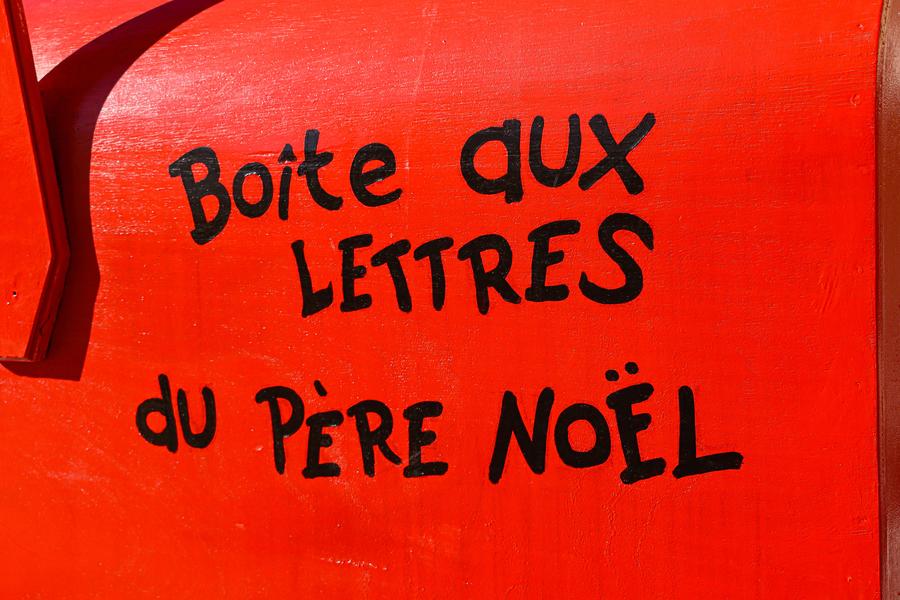 Boîte aux
LETTRES
du PÈRE NOËL